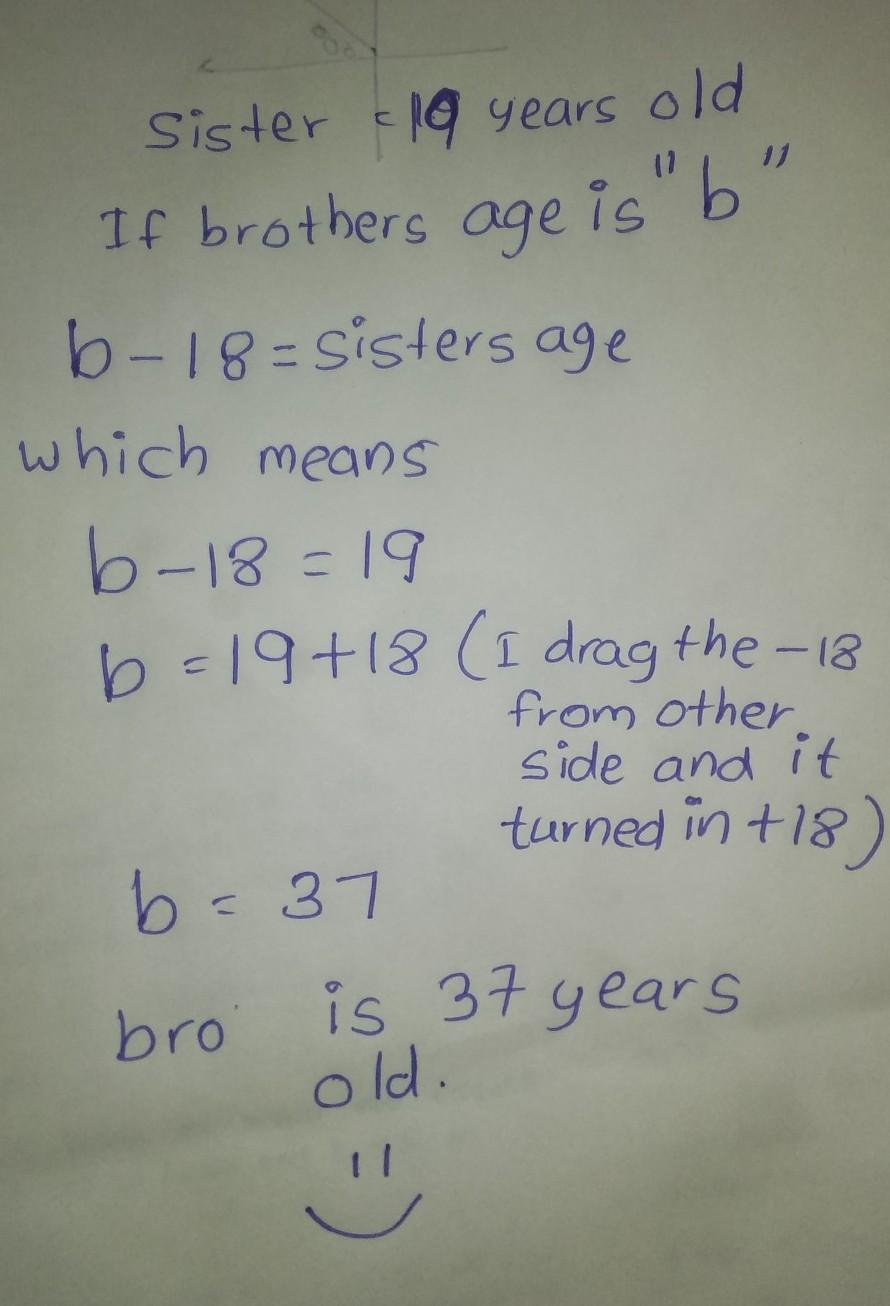 Sister = 19 years old
If brothers age is "b"
b - 18 = sisters age
which means
b - 18 = 19
b = 19 + 18 (I drag the - 18
from other
side and it
turned in + 18)
b = 37
bro is 37 years
old.